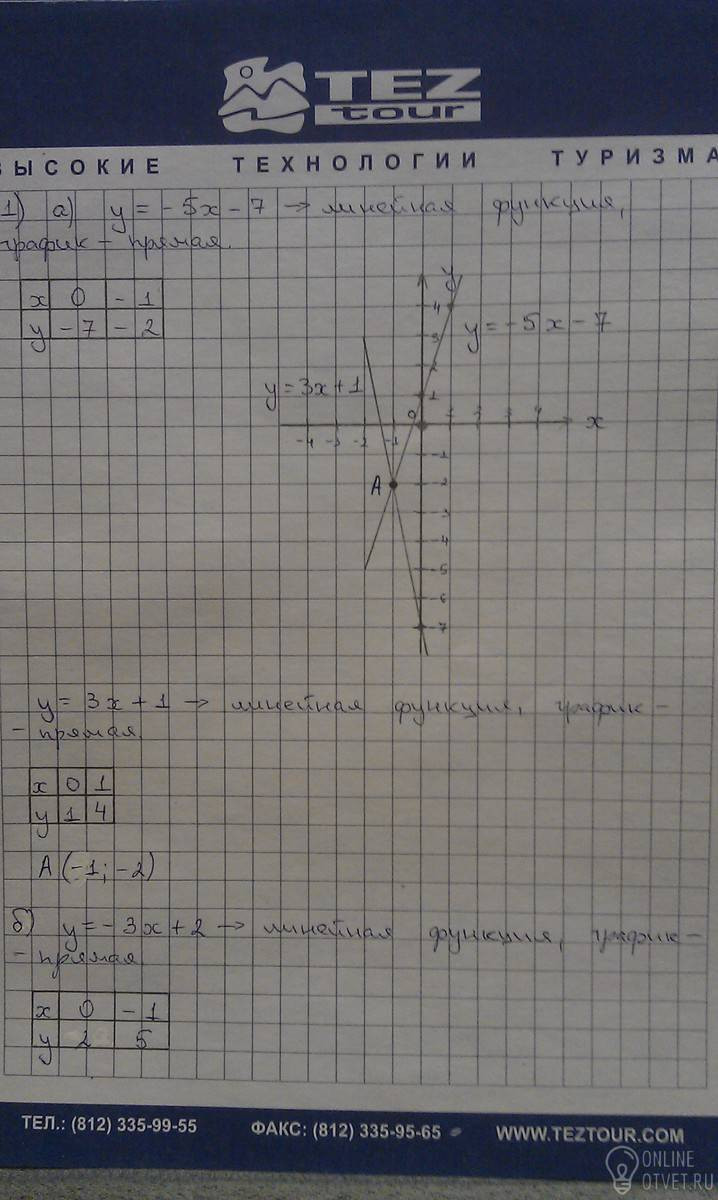 TEZ
tour
ВЫСОКИЕ ТЕХНОЛОГИИ ТУРИЗМА
1) а) y = -5x - 7 → линейная функция,
график - прямая.
x 0 -1
y -7 -2
y
4
y = -5x - 7
3
2
y = 3x + 1
1
0
x
-4 -3 -2 -1
-1
A
-2
-3
-4
-5
-6
-7
y = 3x + 1 → линейная функция, график -
- прямая.
x 0 1
y 1 4
A (-1; -2)
б) y = -3x + 2 → линейная функция, график -
- прямая
x 0 -1
y 2 5
ТЕЛ.: (812) 335-99-55 ФАКС: (812) 335-95-65 WWW.TEZTOUR.COM
ONLINE
OTVET.RU